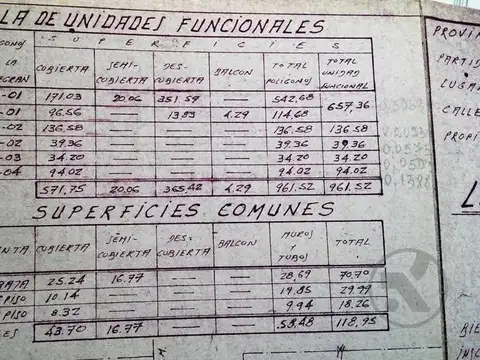 LA DE UNIDADES FUNCIONALES
SUPERFICIES
LA CUBIERTA SEMI-CUBIERTA DES-CUBIERTA BALCON TOTAL POLIGONOS TOTAL UNIDAD FUNCIONAL
-01 171.03 20.06 351.59 — 542,68
657,36
-01 96,56 — 13.83 4.29 114,68
-02 136,58 — — — 136.58 136.58
-02 39.36 — — — 39.36 39.36
-03 34.20 — — — 34.20 34.20
-04 94.02 — — — 94.02 94.02
571,75 20,06 365,42 4,29 961,52 961,52
SUPERFICIES COMUNES
NTA CUBIERTA SEMI-CUBIERTA DES-CUBIERTA BALCON MUROS Y TUBOS TOTAL
25.24 16.77 — — 28.69 70.70
PISO 10.14 — — — 19.85 29.99
PISO 8.32 — — — 9.94 18.26
ES 43.70 16.77 — — 58.48 118,95
PROVIN
PARTID
LUGAR
CALLE
PROPI